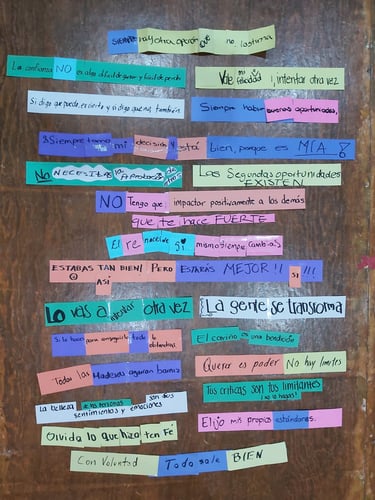 SIEMPRE hay otra opción que no lastima
La confianza NO es algo difícil de ganar y fácil de perder
Vale mi felicidad, intentar otra vez
Si digo que puedo, es cierto y si digo que no, también
Siempre habrán buenas oportunidades,
Siempre tomo mi decisión y está bien, porque es MIA
No NECESITAS la Aprobación de
Las Segundas oportunidades EXISTEN
NO Tengo que impactar positivamente a los demás
que te hace FUERTE
El re si mismo tiempo, cambiais
ESTABAS TAN BIEN! PERO ESTARAS MEJOR!! SI !!!
ASI
Lo vas a intentar otra vez
La gente se transforma
Si lo haces para conseguirlo todo lo obtendras
El camino es una bendición
Todas las Maderas agarran barniz
Querer es poder No hay limites
La belleza de las personas son sus sentimientos y emociones
Tus criticas son tus limitantes
¡no lo hagas!
Elijo mis propios estándares.
Olvida lo que hizo ten Fé
Con Voluntad Todo sale BIEN